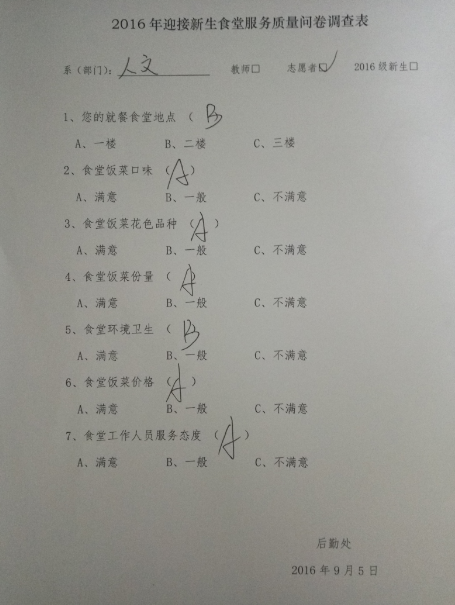 2016年迎接新生食堂服务质量问卷调查表
系(部门): 人文 教师□ 志愿者☑ 2016级新生□
1、您的就餐食堂地点 ( B
A、一楼 B、二楼 C、三楼
2、食堂饭菜口味 (A)
A、满意 B、一般 C、不满意
3、食堂饭菜花色品种 (A)
A、满意 B、一般 C、不满意
4、食堂饭菜份量 ( A
A、满意 B、一般 C、不满意
5、食堂环境卫生 ( B
A、满意 B、一般 C、不满意
6、食堂饭菜价格 (A)
A、满意 B、一般 C、不满意
7、食堂工作人员服务态度 (A)
A、满意 B、一般 C、不满意
后勤处
2016年9月5日